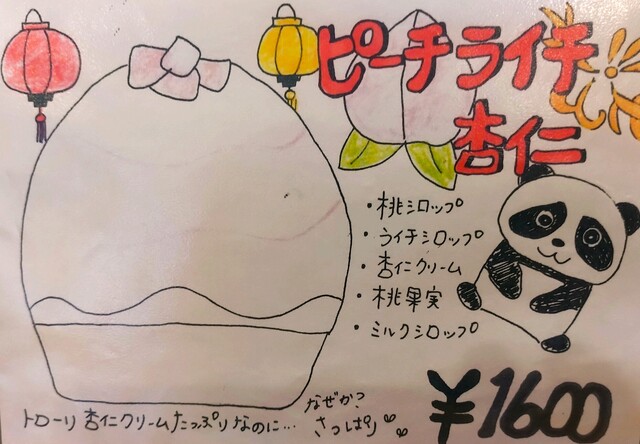 ピーチライチ
杏仁
・桃シロップ
・ライチシロップ
・杏仁クリーム
・桃果実
・ミルクシロップ
¥1600
トローリ杏仁クリームたっぷりなのに…
なぜか?
さっぱり